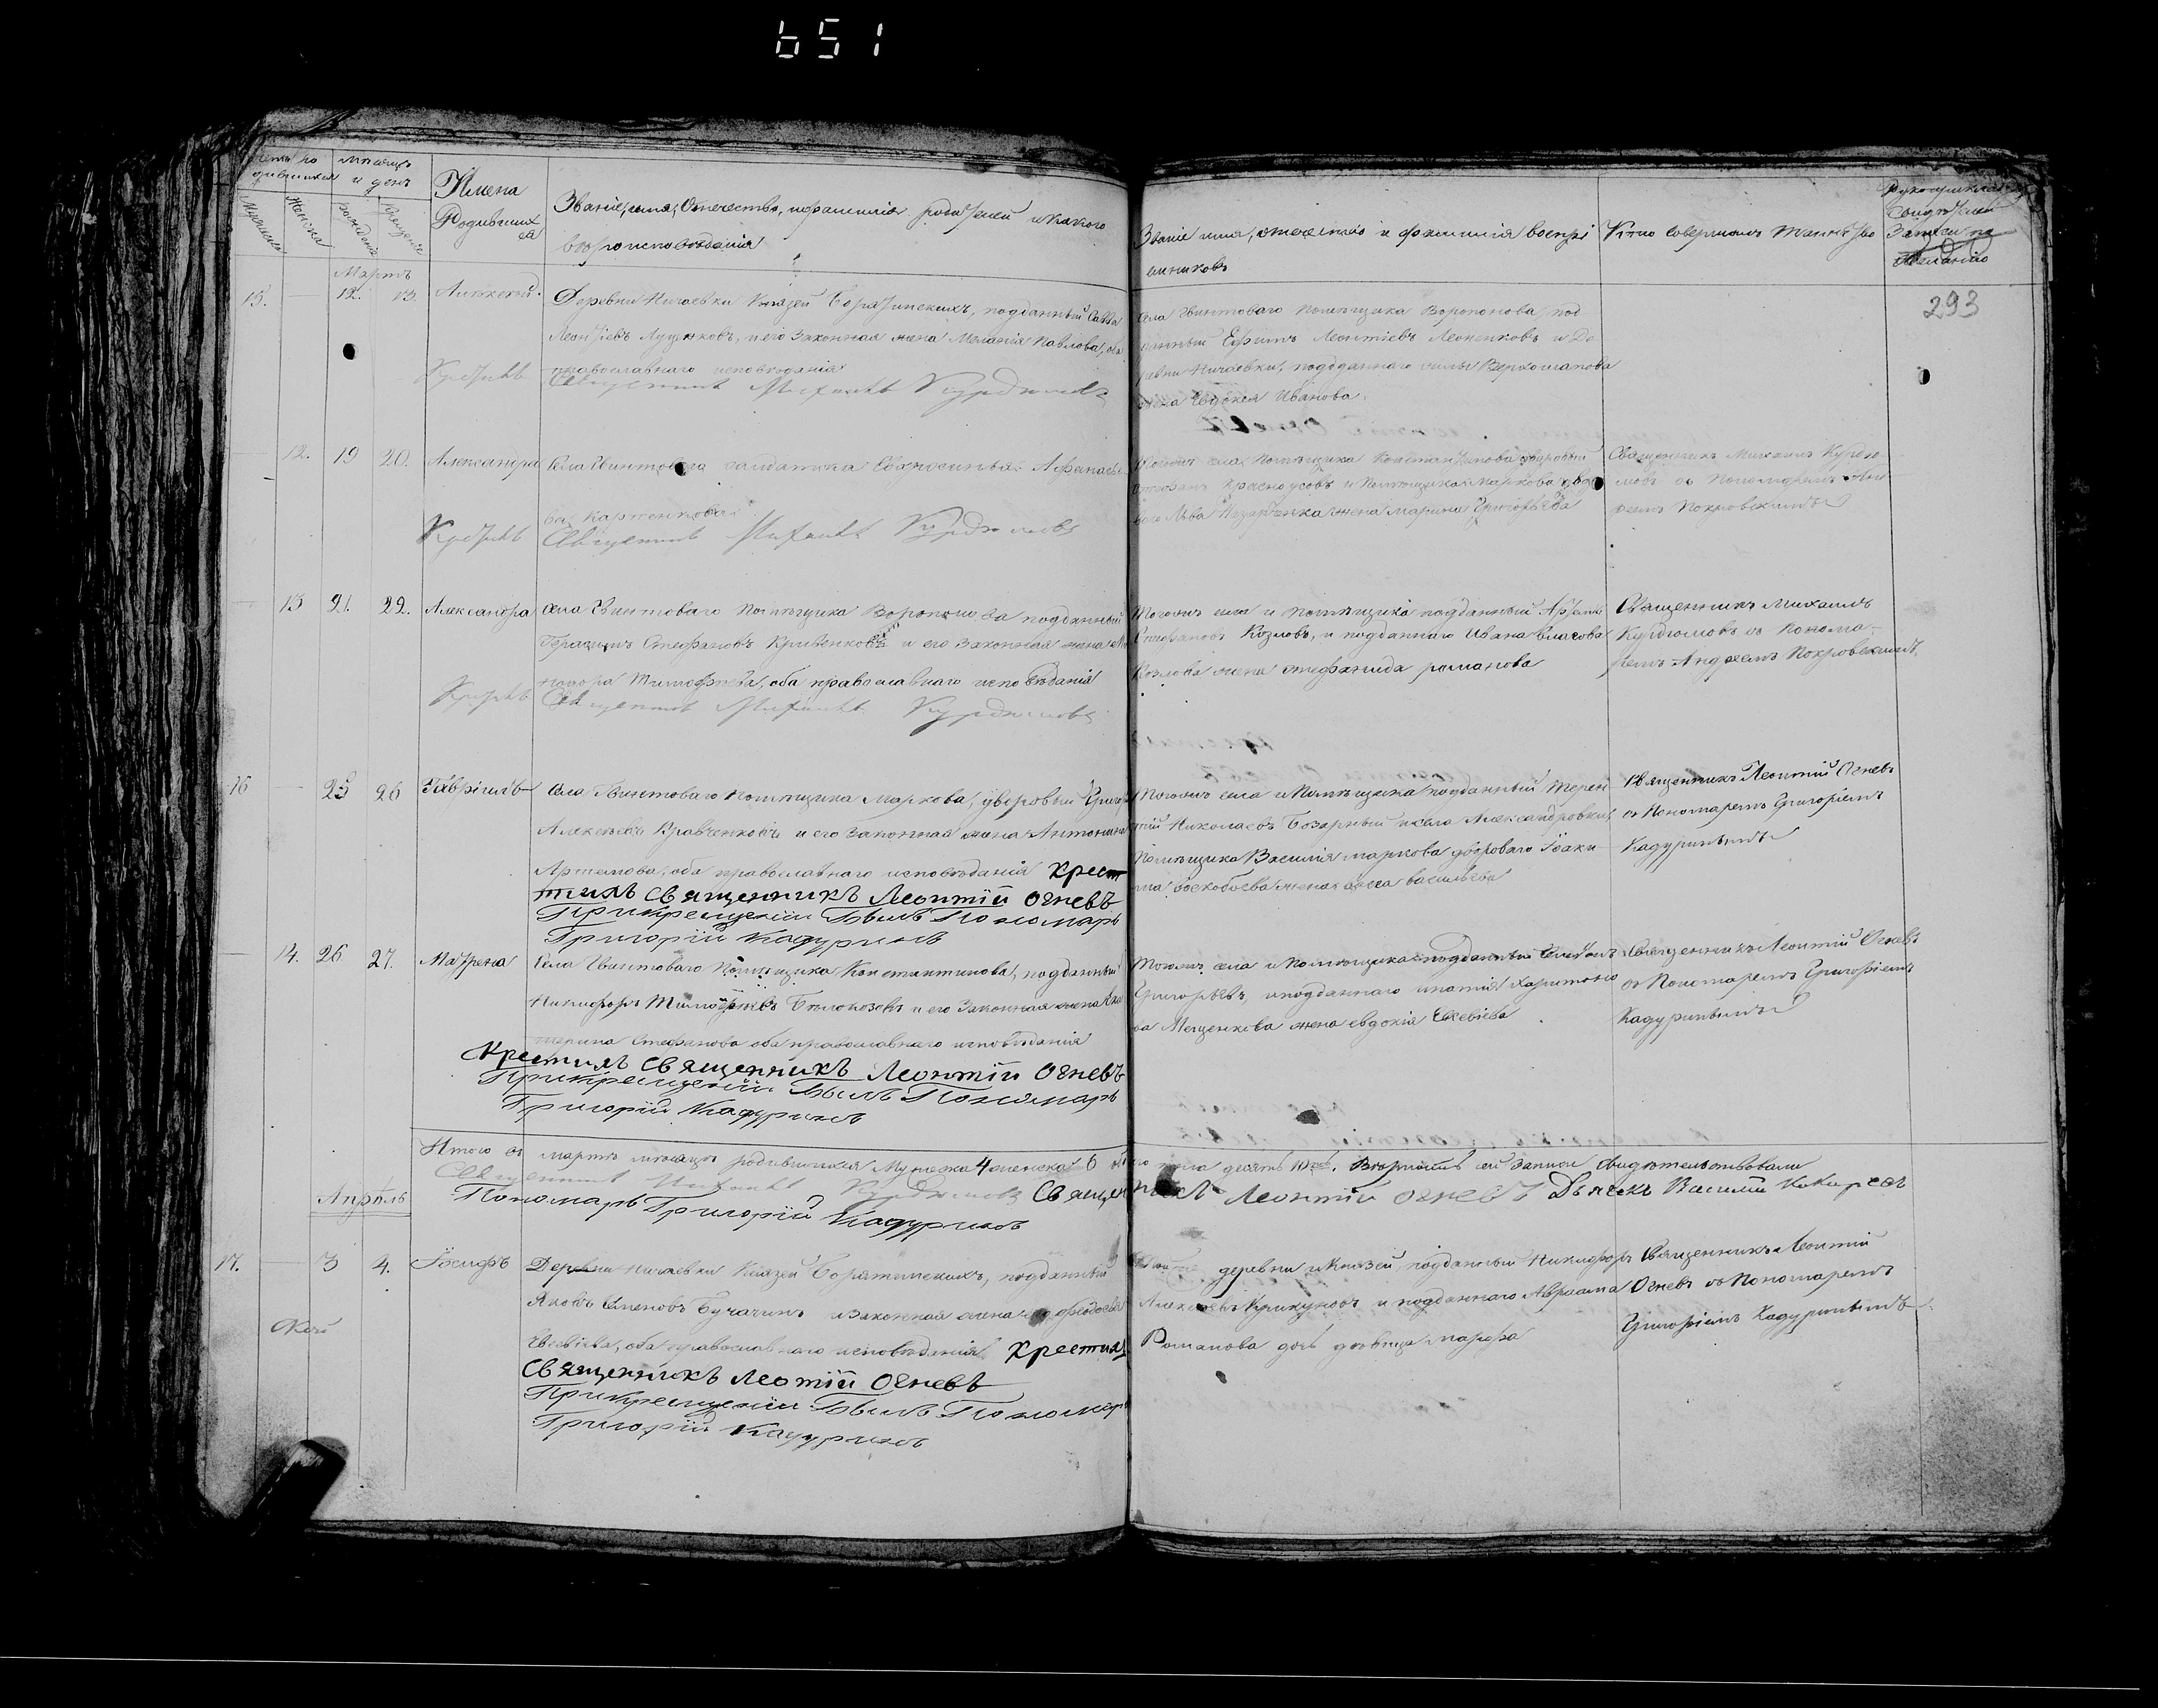 651
Имена
Родившихся
Званіе, имя, Отечество, и фамилія родителей и какого
вѣроисповѣданія
Званіе имя, отечество и фамилія воспрі
емниковъ
Кто совершалъ таинство
293
Мартъ
15. 12. 13. Алексѣй.
Деревни Ничаевки Князей Борятинскихъ, подданный Савва
Леонтіевъ Луценковъ, и его Законная жена Меланія Павлова, оба
православнаго исповѣданія
Крестилъ Священникъ Михаилъ Курдюмовъ
села Гвинтоваго помѣщика Воропонова под
данный Ефимъ Леонтіевъ Леоненковъ и Де
ревни Ничаевки, подданнаго
жена Евдокія Иванова.
12. 19 20. Александра
Села Гвинтоваго салдатка Афанасье
ва Карпенкова
Крестилъ Священникъ Михаилъ Курдюмовъ
Тогожъ села, Помѣщика Константинова дворовый
Красноусовъ и Помѣщика Маркова дворо
ваго Льва Назаренка жена Марина Григорьева
Священникъ Михаилъ Курдю-
мовъ съ Пономаремъ Анд
реемъ Покровскимъ
13 21. 22. Александра
Села Гвинтоваго Помѣщика Воропонова подданный
Герасимъ Стефановъ Кривенковъ и его законная жена
Тимофѣева, оба православнаго исповѣданія
Крестилъ Священникъ Михаилъ Курдюмовъ
Тогожъ села и помѣщика подданный
Стефановъ Козловъ, и подданнаго Ивана Власова
Козлова жена стефанида романова
Священникъ Михаилъ
Курдюмовъ съ Понома-
ремъ Андреемъ Покровскимъ
16 25 26 Гавріилъ
Села Гвинтоваго Помѣщика Маркова, дворовый Григор
Алексѣевъ Кравченковъ и его законная жена Антонина
Артемова, оба православнаго исповѣданія Крест
тилъ Священникъ Леонтій Огневъ
Прикрещеніи Былъ Пономарь
Григорій Кадуринъ
Тогожъ села и Помѣщика подданный Терен
тій Николаевъ Бозарный и села Александровки,
Помѣщика Василія маркова двороваго Іоаки-
ма воскобоева жена васильева
Священникъ Леонтій Огневъ
съ Пономаремъ Григоріемъ
Кадуринымъ
14. 26 27. Матрена
Села Гвинтоваго Помѣщика Константинова, подданный
Никифоръ Тимофѣевъ Бѣлокозовъ и его Законная жена Ека
терина Стефанова оба православнаго исповѣданія
Крестилъ Священникъ Леонтій Огневъ
Прикрещеніи Былъ Пономарь
Григорій Кадуринъ
Тогожъ села и помѣщика подданный
Григорьевъ, и подданнаго игнатія Харитоно
ва Мащенкова жена евдокія Евсевіева
Священникъ Леонтій Огневъ
съ Пономаремъ Григоріемъ
Кадуринымъ
Итого въ мартѣ мѣсяцѣ родившихся Мужеска 4 женска 6
пола десять 10. Вѣрность сей Записи свидѣтельствовали
Священникъ Михаилъ Курдюмовъ Священникъ Леонтій Огневъ Дьячекъ Василій
Пономарь Григорій Кадуринъ
Апрѣль
17. 3 4. Іосифъ
Деревни Ничаевки Князей Борятинскихъ, подданный
Яковъ Семеновъ Бучачинъ и Законная жена его феодосія
Евсевіева, оба православнаго исповѣданія Крестилъ
Священникъ Леотій Огневъ
Прикрещеніи Былъ Пономарь
Григорій Кадуринъ
деревни и Князей, подданный Никифоръ
Алексѣевъ Крикуновъ и подданнаго Авраама
Романова дочь дѣвица марфа
Священникъ Леонтій
Огневъ съ Пономаремъ
Григоріемъ Кадуринымъ